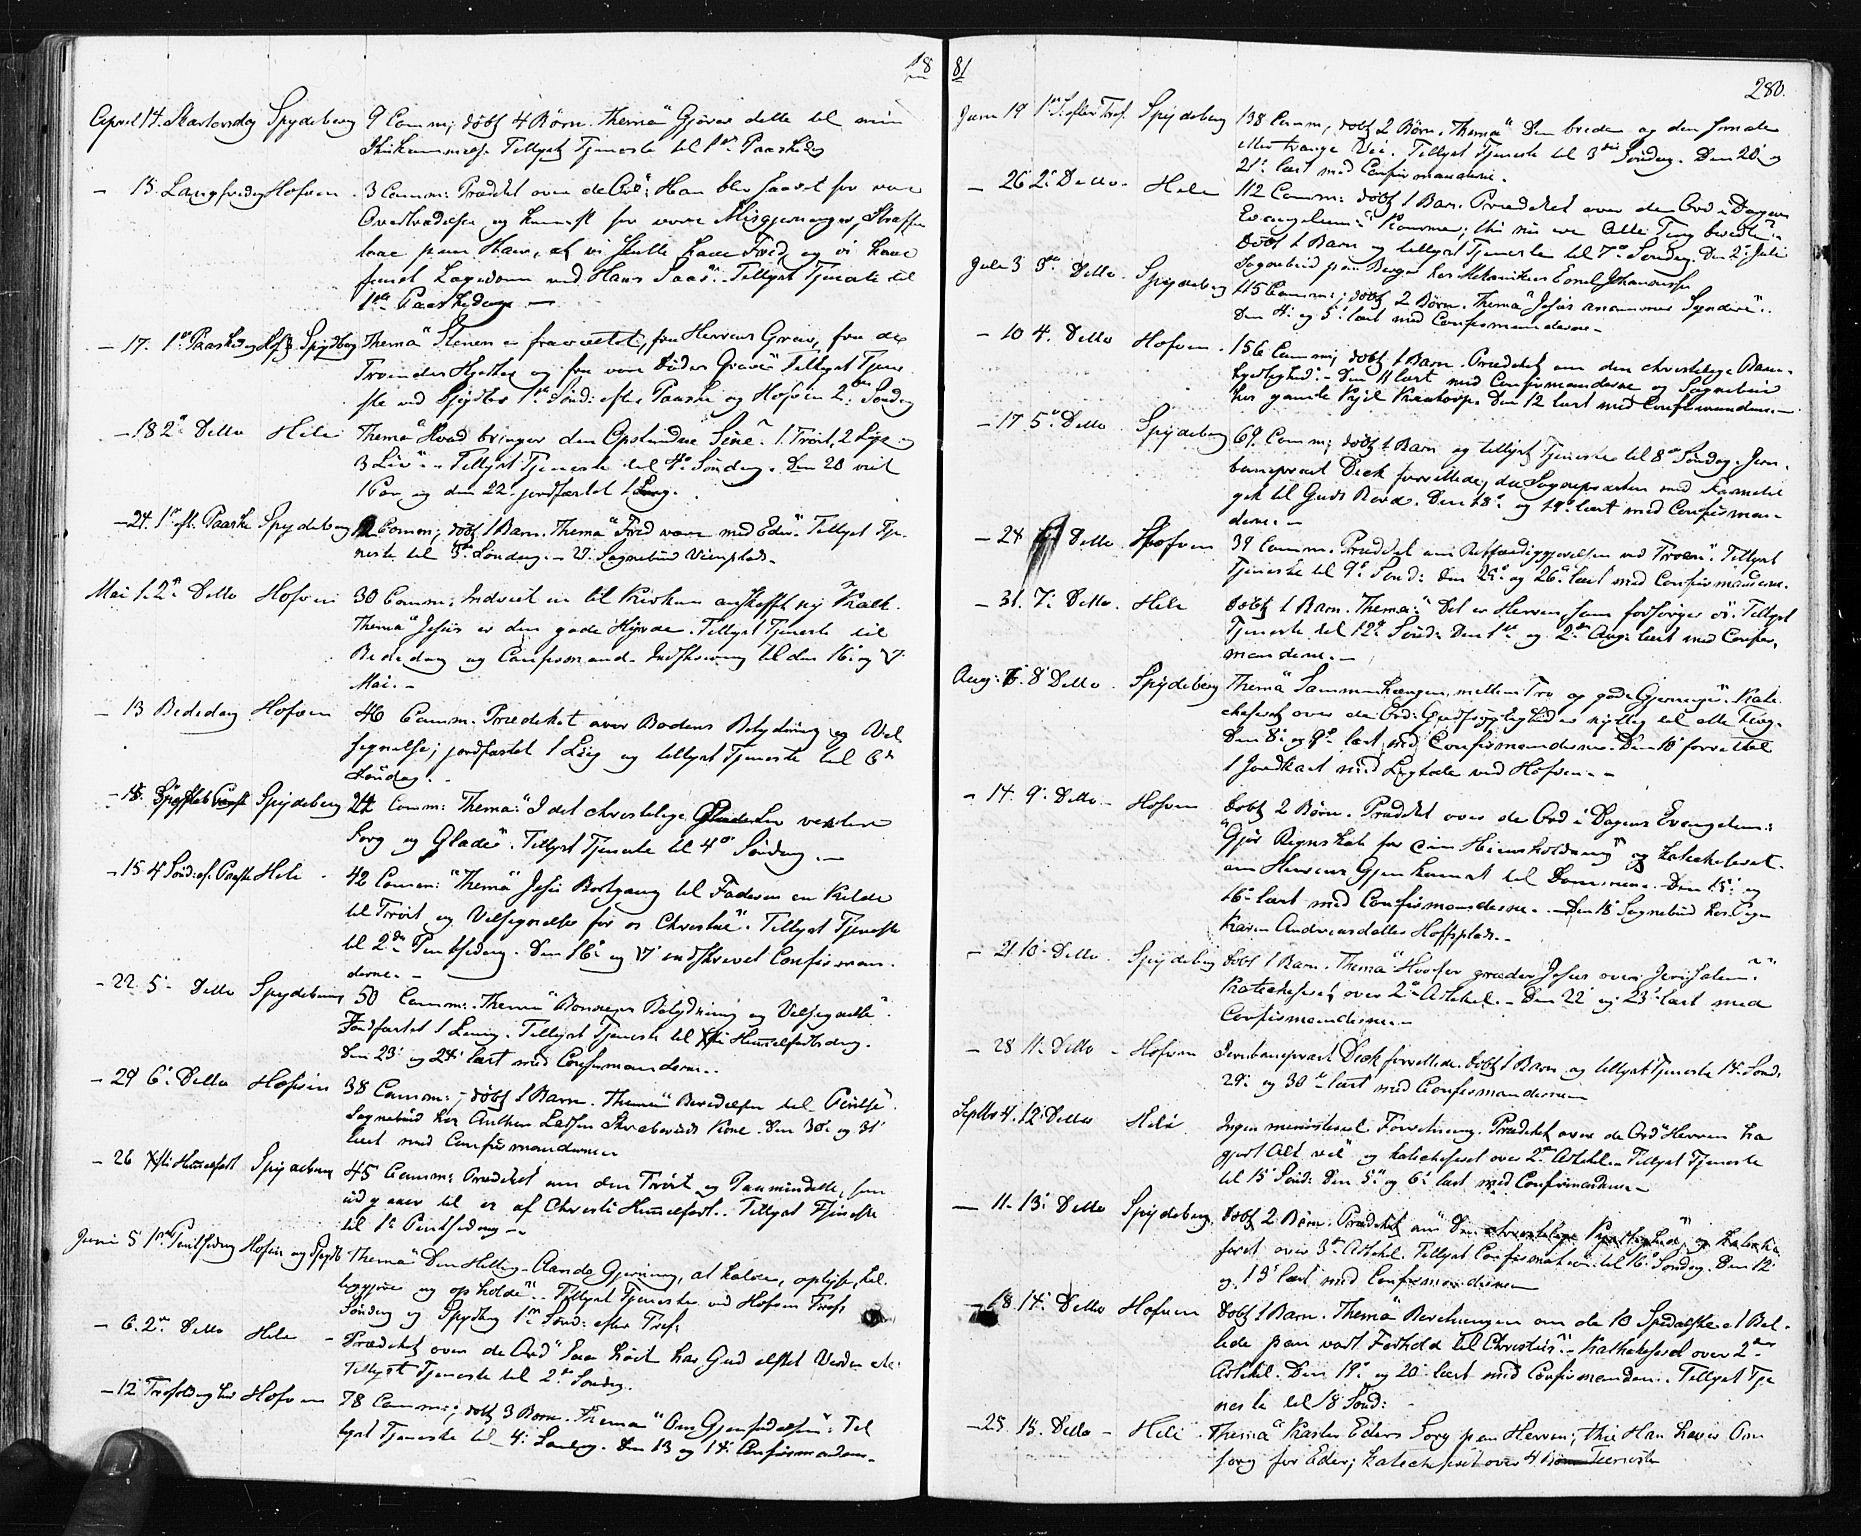 18
April 14. Skærtorsdag Spydeberg 9 Comm; døbt 4 Børn. Thema "Gjører dette til min
Ihukommelse. Tillyst Tjeneste til 1ste Paaskedag
— 15. Langfredag Hofvin. 3 Comm: Prædiket over de Ord: Han blev saaret for vore
Overtrædelser og knust for vore Misgjerninger, Straffen
laae paa Ham, at vi skulle have Fred og vi have
faaet Lægedom ved Hans Saar". Tillyst Tjeneste til
1ste Paaskedag. —
— 17. 1ste Paaskedag Hof. & Spydbg Thema "Stenen er fravæltet, fra Herrens Grav, fra de
Troendes Hjerter og fra vore Dødes Grave" Tillyst Tjene-
ste ved Spydbg 1ste Sønd: efter Paaske og Hofvin 2den Søndag
— 18 2den Detto Heli Thema "Hvad bringer den Opstandne Sine". 1. Trøst, 2 Lys og
3 Liv". Tillyst Tjeneste til 4de Søndag. Den 20 viet
1 Par og den 22. jordfæstet 1 Lig.
— 24. 1ste eft. Paaske Spydeberg Comm; døbt 1 Barn. Thema "Fred være med Eder". Tillyst Tje-
neste til 3die Søndag. — Sognebud
Mai 1. 2den Detto Hofvin 30 Comm; Indviet en til Kirken anskaffet ny Kalk.
Thema "Jesus er den gode Hyrde. Tillyst Tjeneste til
Bededag og Confirmand. Indskrivning til den 16. og 17
Mai. —
— 13 Bededag Hofvin 46 Comm. Prædiket over Bodens Betydning og Vel-
signelse; jordfæstet 1 Lig og tillyst Tjeneste til 6te
Søndag. —
Spydeberg 24 Comm: Thema: "I det christelige Liv vexler
Sorg og Glæde". Tillyst Tjeneste til 4de Søndag. —
— 15. 4 Sønd: ef. Paaske Heli 42 Comm: "Thema" Jesu Bortgang til Faderen en Kilde
til Trøst og Velsignelse for os Christne". Tillyst Tjeneste
til 2den Pintsedag. Den 16. og 17 indskrevet Confirman-
derne. —
— 22. 5. Detto Spydeberg 50 Comm: Thema "Bønnens Betydning og Velsignelse".
Jordfæstet 1 Lig. Tillyst Tjeneste til Xsti Himmelfartsdag.
Den 23. og 24. læst med Confirmanderne.
— 29 6. Detto Hofvin 38 Comm: døbt 1 Barn. Thema "Beredelsen til Pintse".
Sognebud hos Anthon Larsen Kone. Den 30. og 31
læst med Confirmanderne
— 26 Xsti Himmelfart Spydeberg 45 Comm: Prædiket om den Trøst og Paamindelse, som
udgaaer til os af Christi Himmelfart. Tillyst Tjeneste
til 1ste Pintsedag —.
Juni 5 1ste Pintsedag Hofvin og Spydb Thema "Den Hellig-Aands Gjerning, at kalde, oplyse, hel-
liggjøre og opholde". Tillyst Tjeneste ved Hofvin Tref:
Søndag og Spydbg 1ste Sønd: efter Tref:
— 6. 2den Detto Heli — Prædiket over de Ord "Saa høit har Gud elsket Verden etc:
Tillyst Tjeneste til 2den Søndag.
— 12 Trefoldighed Hofvin 78 Comm:; døbt 3 Børn. Thema "Om Gjenfødelsen". Til-
lyst Tjeneste til 4. Søndag. Den 13 og 14. Confirmanderne.
81
280.
Juni 19 1ste S. efter Tref. Spydeberg 138 Comm; døbt 2 Børn. Thema "Den brede og den smale
eller trange Vei. Tillyst Tjeneste til 3die Søndag. Den 20. og
21. læst med Confirmanderne.
— 26 2. Detto. Heli 112 Comm: døbt 1 Barn. Prædiket over de Ord i Dagens
Evangelium: "Kommer, thi nu ere Alle Ting beredte".
døbt 1 Barn og tillyst Tjenesten til 7de Søndag. Den 2. Juli
Sognebud paa Berger hos Mekanikus Emil Johannesen
Juli 3 3die Detto. Spydeberg 115 Comm:; døbt 2 Børn. Thema "Jesus annammer Syndere".
Den 4. og 5. læst med Confirmanderne —
— 10 4. Detto Hofvin. 156 Comm; døbt 1 Barn. Prædiket om den christelige Barm-
hjertighed. — Den 11 læst med Confirmanderne og Sognebud
hos gamle Kjel Den 12 læst med Confirmanderne. —
— 17 5. Detto. Spydeberg 69. Comm; døbt 1 Barn og tillyst Tjeneste til 8de Søndag. Jern-
banepræst Deck forrettede, da Sognepræsten med Familie
gik til Guds Bord. Den 18. og 19. læst med Confirman-
derne. —
— 24 6 Detto. Hofvin 39 Comm. Prædiket om Retfærdiggjørelsen ved Troen". Tillyst
Tjeneste til 9de Sønd: den 25. og 26. læst med Confirmanderne.
— 31. 7. Detto. Heli døbt 1 Barn. Thema: "Det er Herren, som forsørger os. Tillyst
Tjeneste til 12te Sønd: Den 1ste og 2den Aug: læst med Confir-
manderne. —
Aug: 8 Detto. Spydeberg Thema "Sammenhængen mellem Tro og gode Gjerninger". Kate-
chiseret over de Ord: Gudfrygtighed er nyttig til alle Ting.
Den 8. og 9de læst med Confirmanderne. Den 10 forrettet
1 Jordkast med Ligtale ved Hofvin. —
— 14. 9. Detto — Hofvin døbt 2 Børn. Prædiket over de Ord i Dagens Evangelium:
"Gjør Regnskab for din Huusholdning" og katechiseret
om Herrens Gjenkomst til Dommen. Den 15. og
16. læst med Confirmanderne. — Den 18 Sognebud hos Pigen
Karen Andreasdatter Hofsplads. —
— 21. 10. Detto. Spydeberg døbt 1 Barn. Thema "Hvorfor græder Jesus over Jerusalem".
Katechiseret over 2den Artikel. — Den 22 og 23. læst med
Confirmanderne. —
— 28 11. Detto — Hofvin Jernbanepræst Deck forrettede. døbt 1 Barn og tillyst Tjeneste 14. Sønd:
29. og 30te læst med Confirmanderne —
Septbr 4. 12. Detto Heli Ingen ministeriel Forretning. Prædiket over de Ord "Herren har
gjort Alt vel" og katechiseret over 2den Artikel. Tillyst Tjeneste
til 15 Sønd: Den 5te og 6. læst med Confirmanderne —
— 11. 13. Detto Spydeberg. døbt 2 Børn. Prædiket om "Den christelige Kjærlighed" og katechi-
seret over 3die Artikel. Tillyst Confirmation til 16. Søndag. Den 12
og 13 læst med Confirmanderne
— 18. 14. Detto Hofvin døbt 1 Barn. Thema "Beretningen om de 10 Spedalske et Bil-
lede paa vort Forhold til Christus". Katechiseret over 2den
Artikel. Den 19. og 20. læst med Confirmanderne. Tillyst Tje-
neste til 18 Sønd:
— 25. 15. Detto — Heli Thema "Kaster Eders Sorg paa Herren, thi Han haver Om-
sorg for Eder; katechiseret over 4 Tjeneste